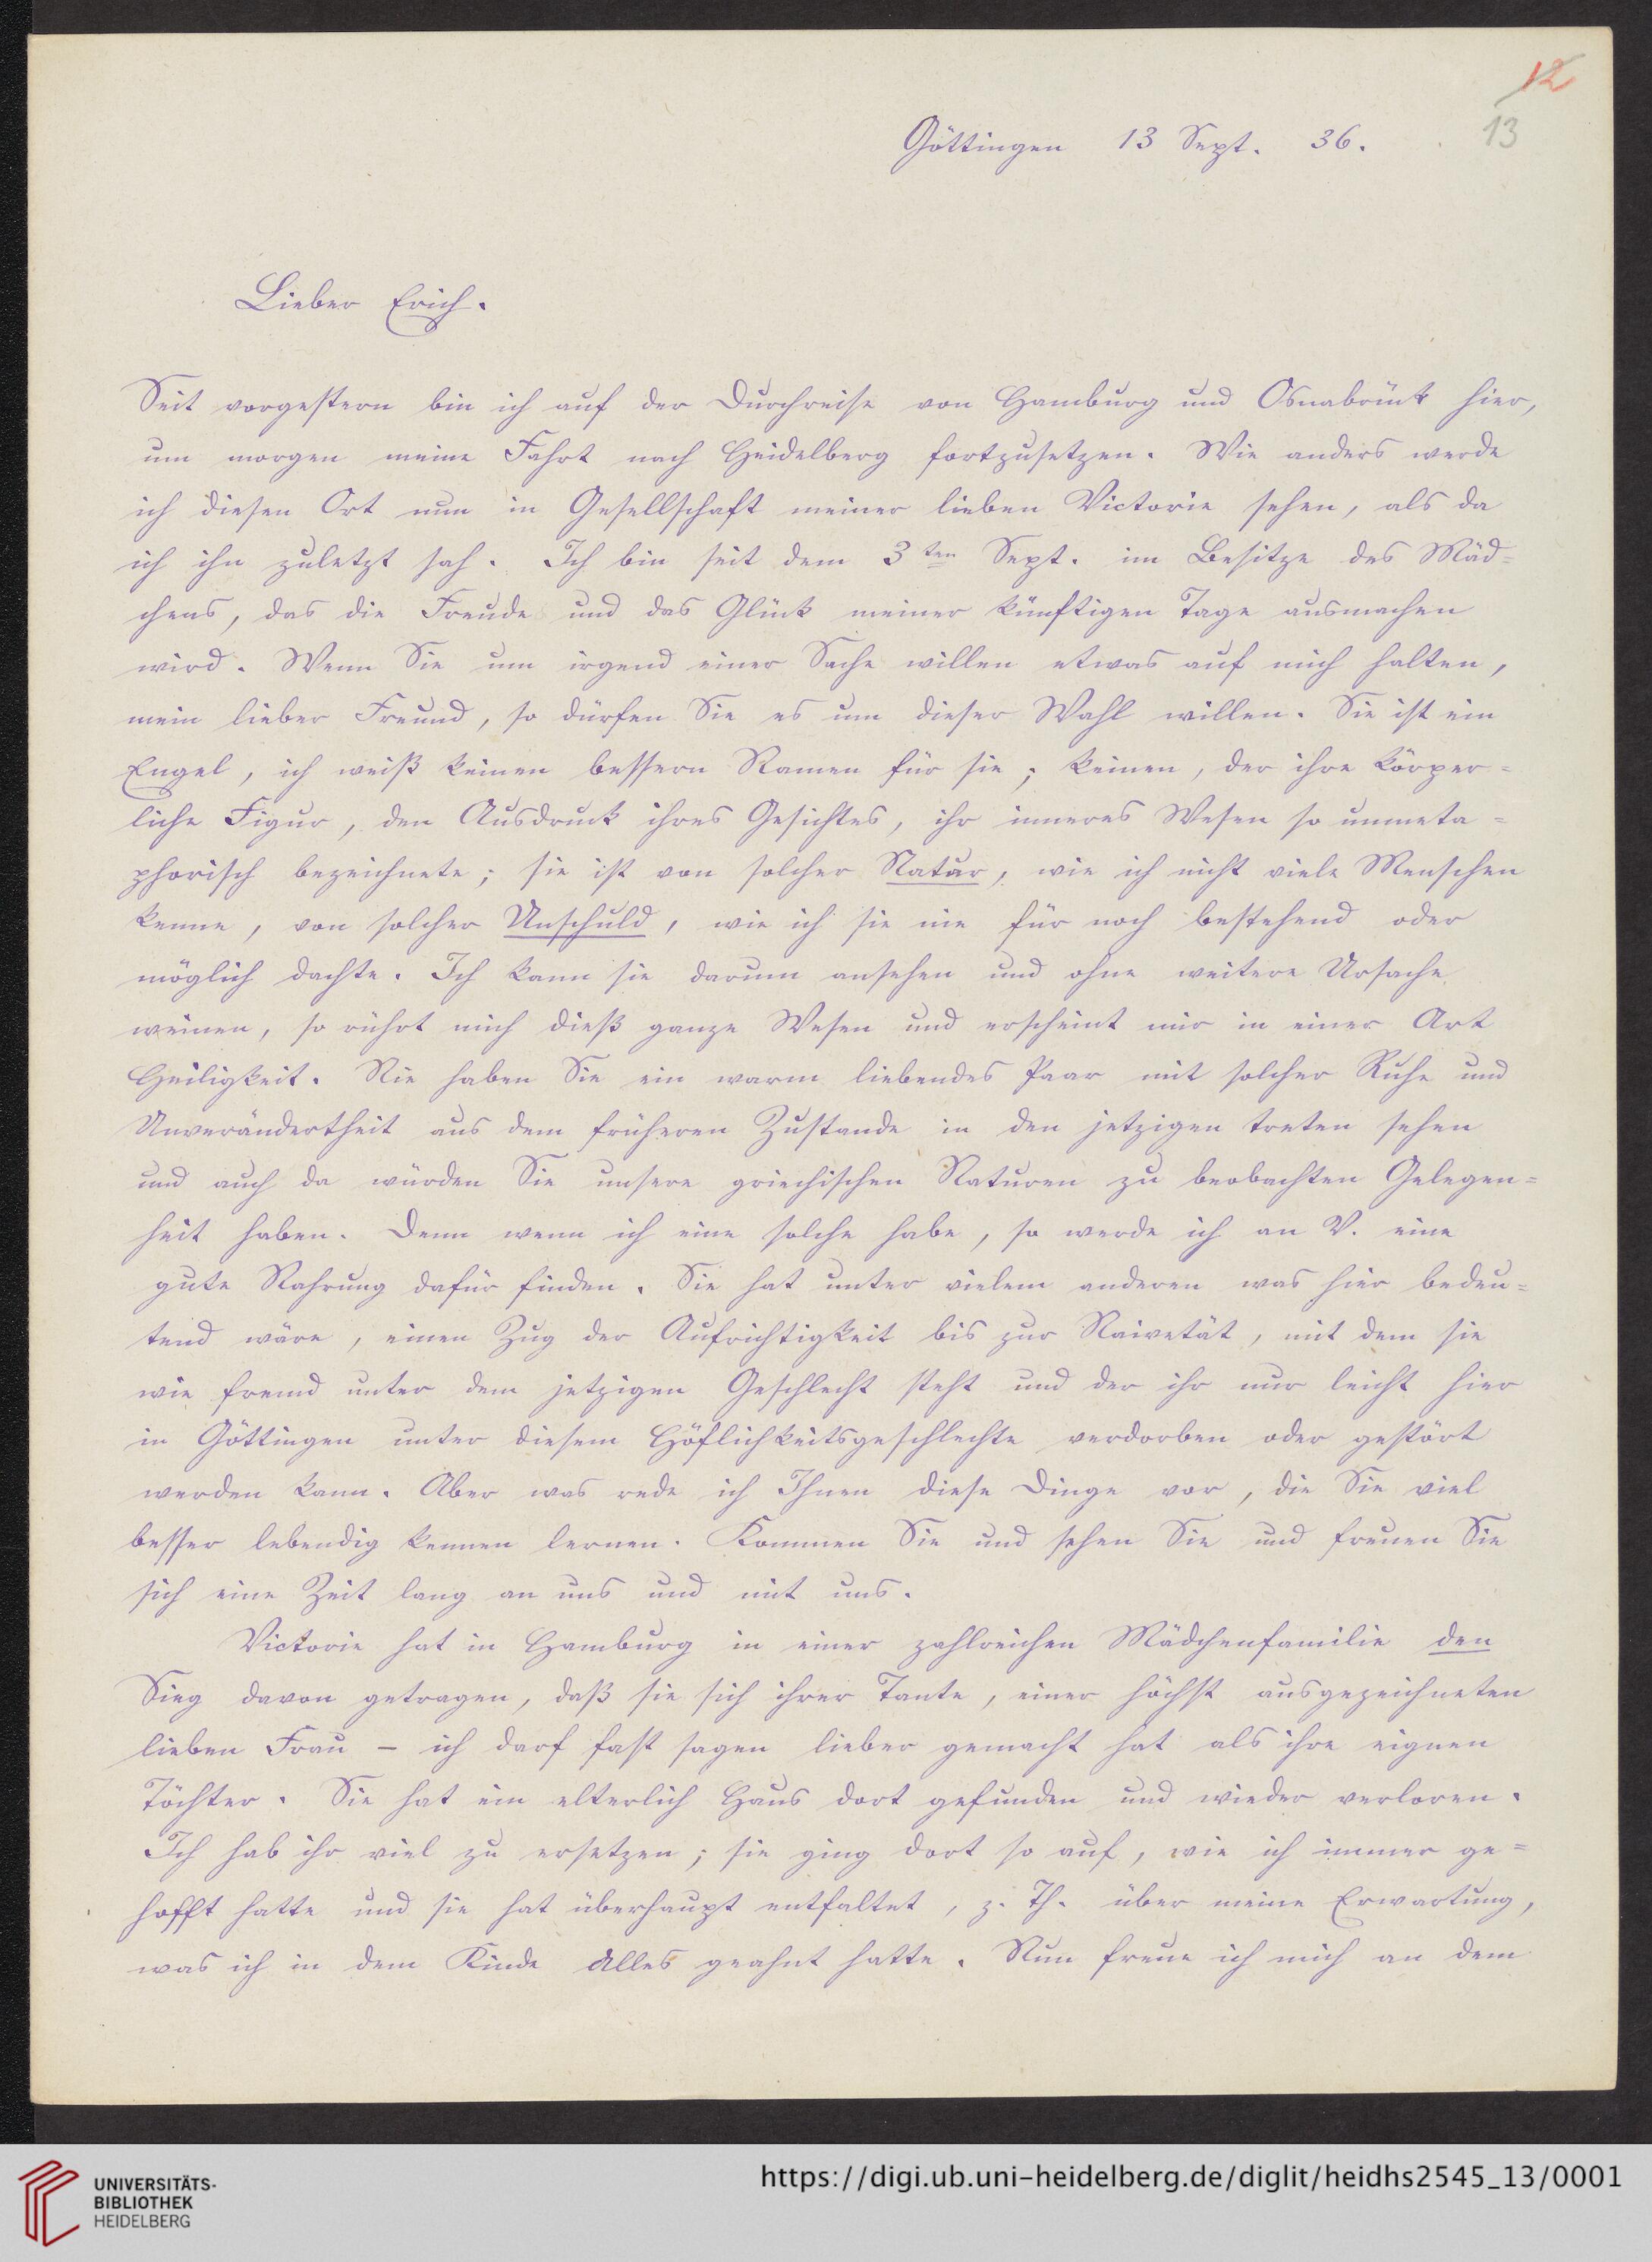 12
13
Göttingen 13 Sept. 36.
Lieber Erich.
Seit vorgestern bin ich auf der Durchreise von Hamburg und Osnabrück hier,
um morgen meine Fahrt nach Heidelberg fortzusetzen. Wie anders werde
ich diesen Ort nun in Gesellschaft meiner lieben Victorie sehen, als da
ich ihn zuletzt sah. Ich bin seit dem 3ten Sept. im Besitze des Mäd-
chens, das die Freude und das Glück meiner künftigen Tage ausmachen
wird. Wenn Sie um irgend einer Sache willen etwas auf mich halten,
mein lieber Freund, so dürfen Sie es um dieser Wahl willen. Sie ist ein
Engel, ich weiß keinen bessern Namen für sie; keinen, der ihre körper-
liche Figur, den Ausdruck ihres Gesichtes, ihr inneres Wesen so unmeta-
phorisch bezeichnete; sie ist von solcher Natur, wie ich nicht viele Menschen
kenne, von solcher Unschuld, wie ich sie nie für noch bestehend oder
möglich dachte. Ich kann sie darum ansehen und ohne weitere Ursache
weinen, so rührt mich dieß ganze Wesen und erscheint mir in einer Art
Heiligkeit. Nie haben Sie ein warm liebendes Paar mit solcher Ruhe und
Unverändertheit aus dem früheren Zustande in den jetzigen treten sehen
und auch da würden Sie unsere griechischen Naturen zu beobachten Gelegen-
heit haben. Denn wenn ich eine solche habe, so werde ich an V. eine
gute Nahrung dafür finden. Sie hat unter vielem anderen was hier bedeu-
tend wäre, einen Zug der Aufrichtigkeit bis zur Naivetät, mit dem sie
wie fremd unter dem jetzigen Geschlecht steht und der ihr nur leicht hier
in Göttingen unter diesem Höflichkeitsgeschlechte verdorben oder gestört
werden kann. Aber was rede ich Ihnen diese Dinge vor, die Sie viel
besser lebendig kennen lernen. Kommen Sie und sehen Sie und freuen Sie
sich eine Zeit lang an uns und mit uns.
Victorie hat in Hamburg in einer zahlreichen Mädchenfamilie den
Sieg davon getragen, daß sie sich ihrer Tante, einer höchst ausgezeichneten
lieben Frau – ich darf fast sagen lieber gemacht hat als ihre eignen
Töchter. Sie hat ein elterlich Haus dort gefunden und wieder verloren.
Ich hab ihr viel zu ersetzen; sie ging dort so auf, wie ich immer ge-
hofft hatte und sie hat überhaupt entfaltet, z. Th. über meine Erwartung,
was ich in dem Kinde Alles geahnt hatte. Nun freue ich mich an dem
UNIVERSITÄTS-
BIBLIOTHEK
HEIDELBERG
https://digi.ub.uni-heidelberg.de/diglit/heidhs2545_13/0001